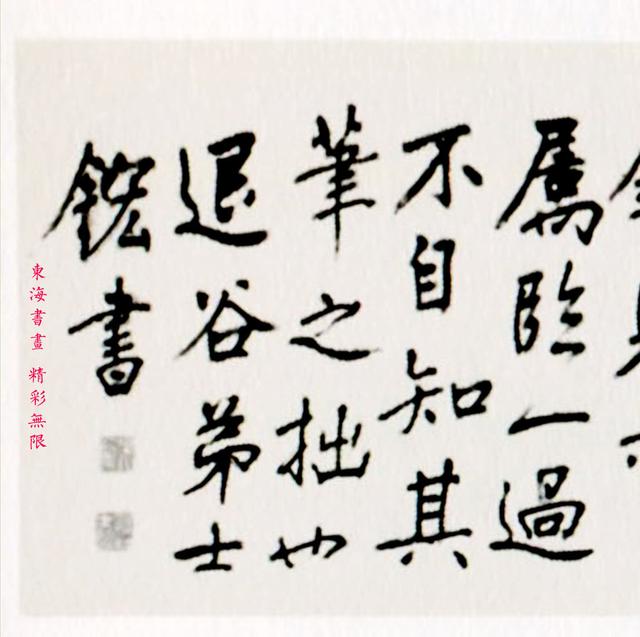 属臨一過
不自知其
筆之拙也
退谷弟士
鋐書
東海書畫 精彩無限